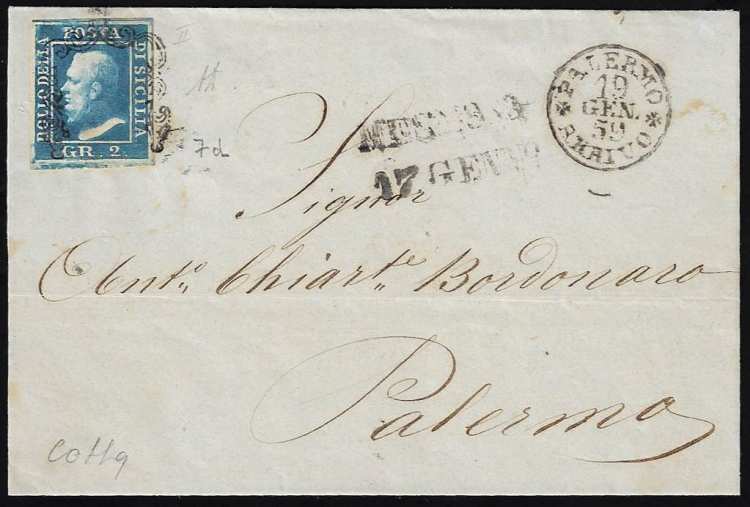 BOLLO DELLA
POSTA
DI SICILIA
GR. 2.
II
7d
MESSINA
17 GENNO
PALERMO
19
GEN.
59
ARRIVO
Signor
Anto. Chiarte. Bordonaro
Palermo